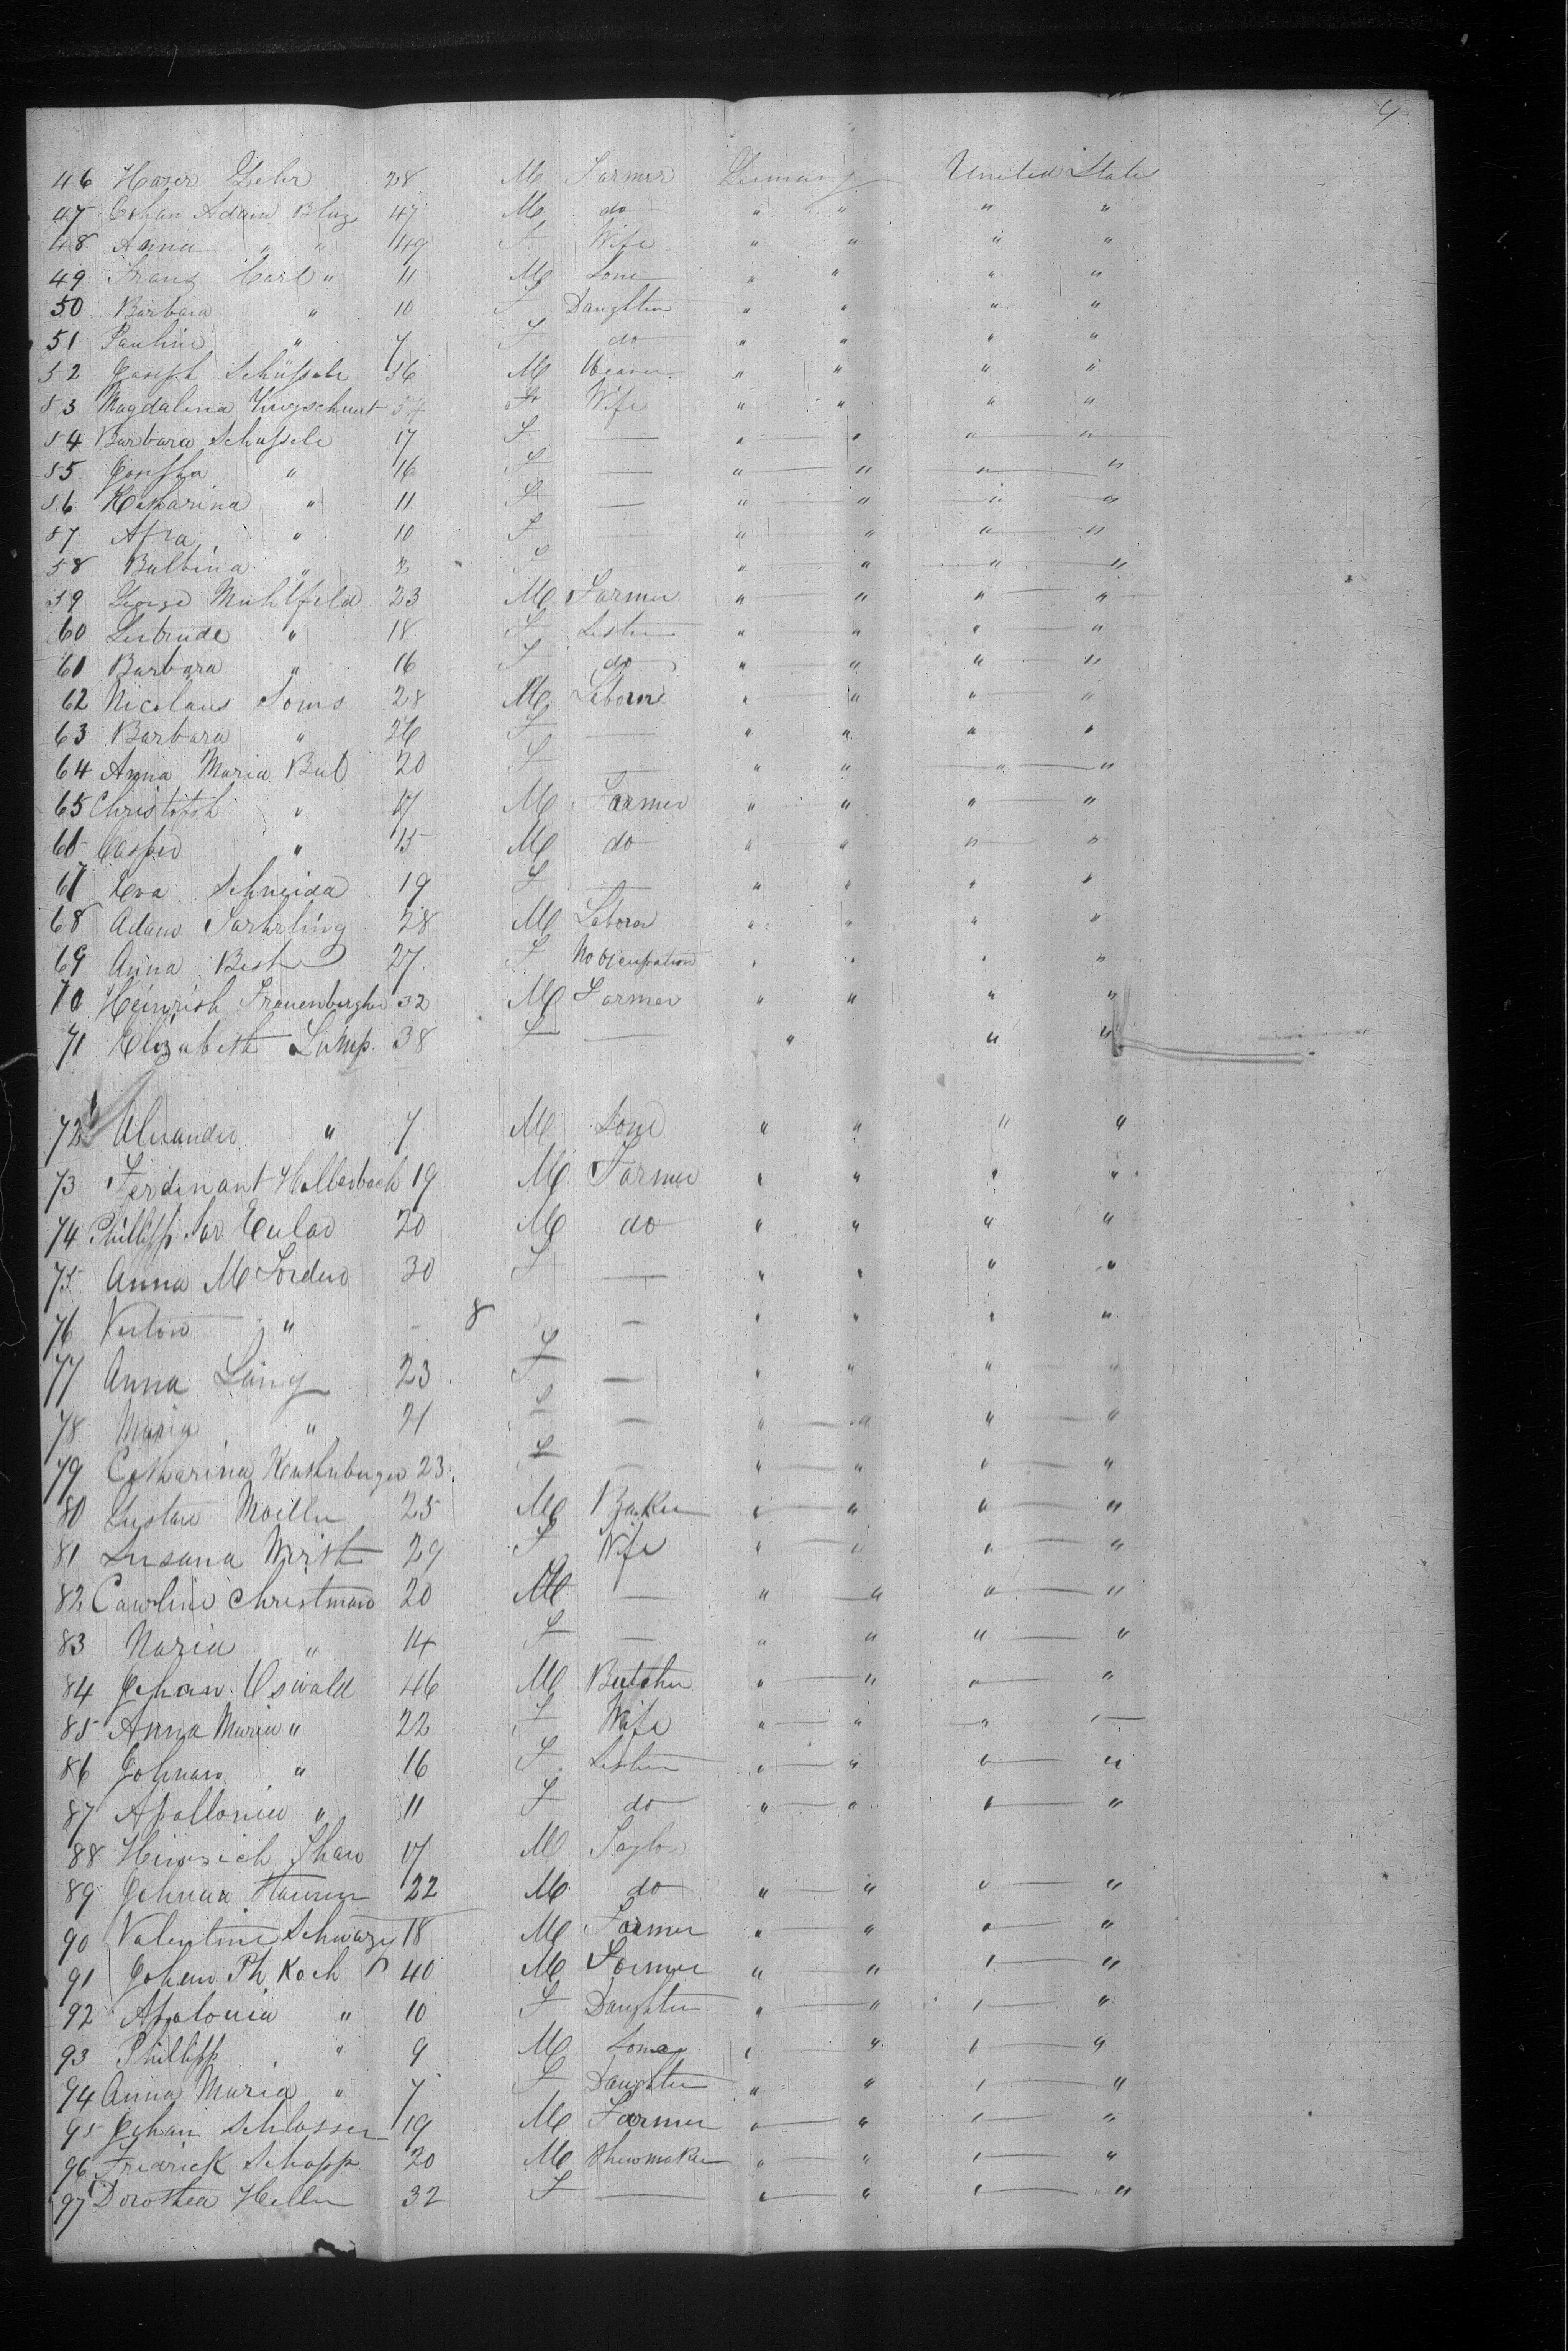 4
46 Haver Gehr 28 M Farmer Germany United States
47 Johan Adam Bluz 47 M do " " " "
48 Anna " " 49 F Wife " " " "
49 Franz Carl " 11 M Sone " " " "
50 Barbara " 10 F Daughter " " " "
51 Pauline " 7 F do " " " "
52 Joseph Schüssele 56 M Weaver " " " "
53 Magdalena 54 F Wife " " " "
54 Barbara Schussele 17 F — " " " "
55 Josepha " 16 F — " " " "
56 Katharina " 11 F — " " " "
57 Afra " 10 F " " " "
58 Balbina " 2 F " " " "
59 George Muhlfeld 23 M Farmer " " " "
60 Gertrude " 18 F Sister " " " "
61 Barbara " 16 F do " " " "
62 Nicolaus Soms 28 M Laborer " " " "
63 Barbara " 26 F — " " " "
64 Anna Maria But 20 F — " " " "
65 Christoph " 17 M Farmer " " " "
66 Casper " 15 M do " " " "
67 Eva Schneida 19 F — " " " "
68 Adam 28 M Laborer " " " "
69 Anna Best 27 F No Ocupation " " " "
70 Heinrich Frauenbergher 32 M Farmer " " " "
71 Elizabeth Lump. 38 F — " " "
72 Alexander " 7 M Sone " " " "
73 Ferdinant Hollerbach 19 M Farmer " " " "
74 Phillipp Eular 20 M do " " " "
75 Anna M 30 F — " " " "
76 " - 8 — " " " "
77 Anna Lang 23 F — " " " "
78 Maria " 21 F — " " " "
79 Catharina 23 F — " " " "
80 Gustav Moeller 25 M Baker " " " "
81 Susana Wirst 29 F Wife " " " "
82 Caroline Christman 20 M — " " " "
83 Maria " 14 F — " " " "
84 Johan Oswald 46 M Butcher " " " "
85 Anna Maria " 22 F Wife " " " "
86 Johnan " 16 F Sister " " " "
87 Apollonia " 11 F do " " " "
88 Heinrich 17 M Taylor
89 Johnan 22 M do " " " "
90 Valentine Schwarz 18 M Farmer " " " "
91 Johan Ph Koch 40 M Former " " " "
92 Apolonia " 10 F Daughter " " " "
93 Phillipp " 9 M Sone " " " "
94 Anna Maria " 7 F Daughter " " " "
95 Johan Schlosser 19 M Farmer " " " "
96 Fredrick Schopp 20 M Shewmaker " " " "
97 Dorothea Heller 32 F — " " " "